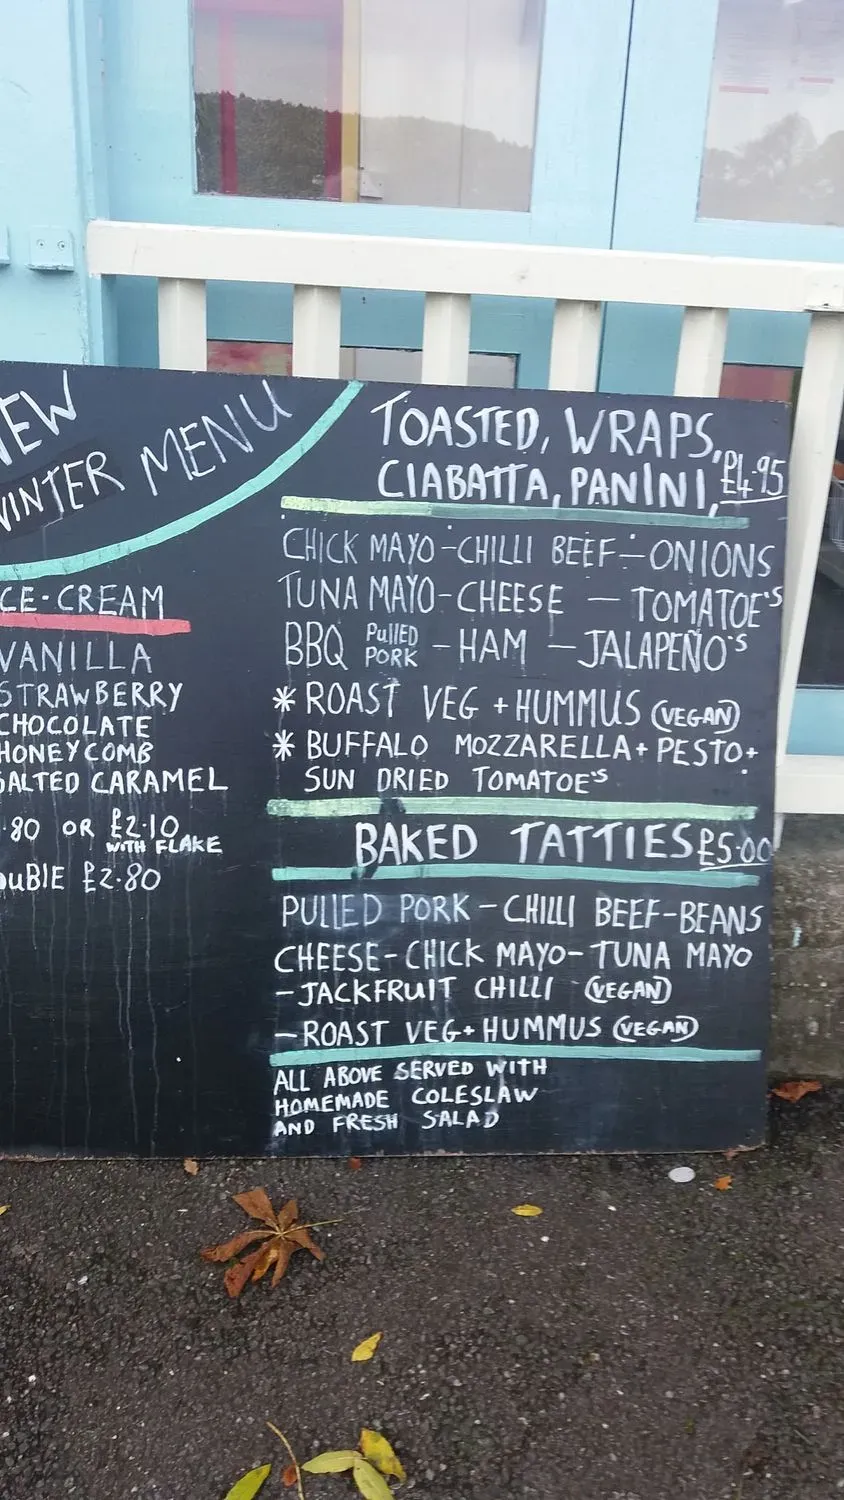 NEW
WINTER MENU
ICE-CREAM
VANILLA
STRAWBERRY
CHOCOLATE
HONEYCOMB
SALTED CARAMEL
.80 OR £2.10
WITH FLAKE
DOUBLE £2.80
TOASTED, WRAPS,
CIABATTA, PANINI, £4.95
CHICK MAYO - CHILLI BEEF - ONIONS
TUNA MAYO - CHEESE - TOMATOE'S
BBQ PULLED PORK - HAM - JALAPEÑO'S
* ROAST VEG + HUMMUS (VEGAN)
* BUFFALO MOZZARELLA + PESTO +
SUN DRIED TOMATOE'S
BAKED TATTIES £5.00
PULLED PORK - CHILLI BEEF - BEANS
CHEESE - CHICK MAYO - TUNA MAYO
- JACKFRUIT CHILLI (VEGAN)
- ROAST VEG + HUMMUS (VEGAN)
ALL ABOVE SERVED WITH
HOMEMADE COLESLAW
AND FRESH SALAD